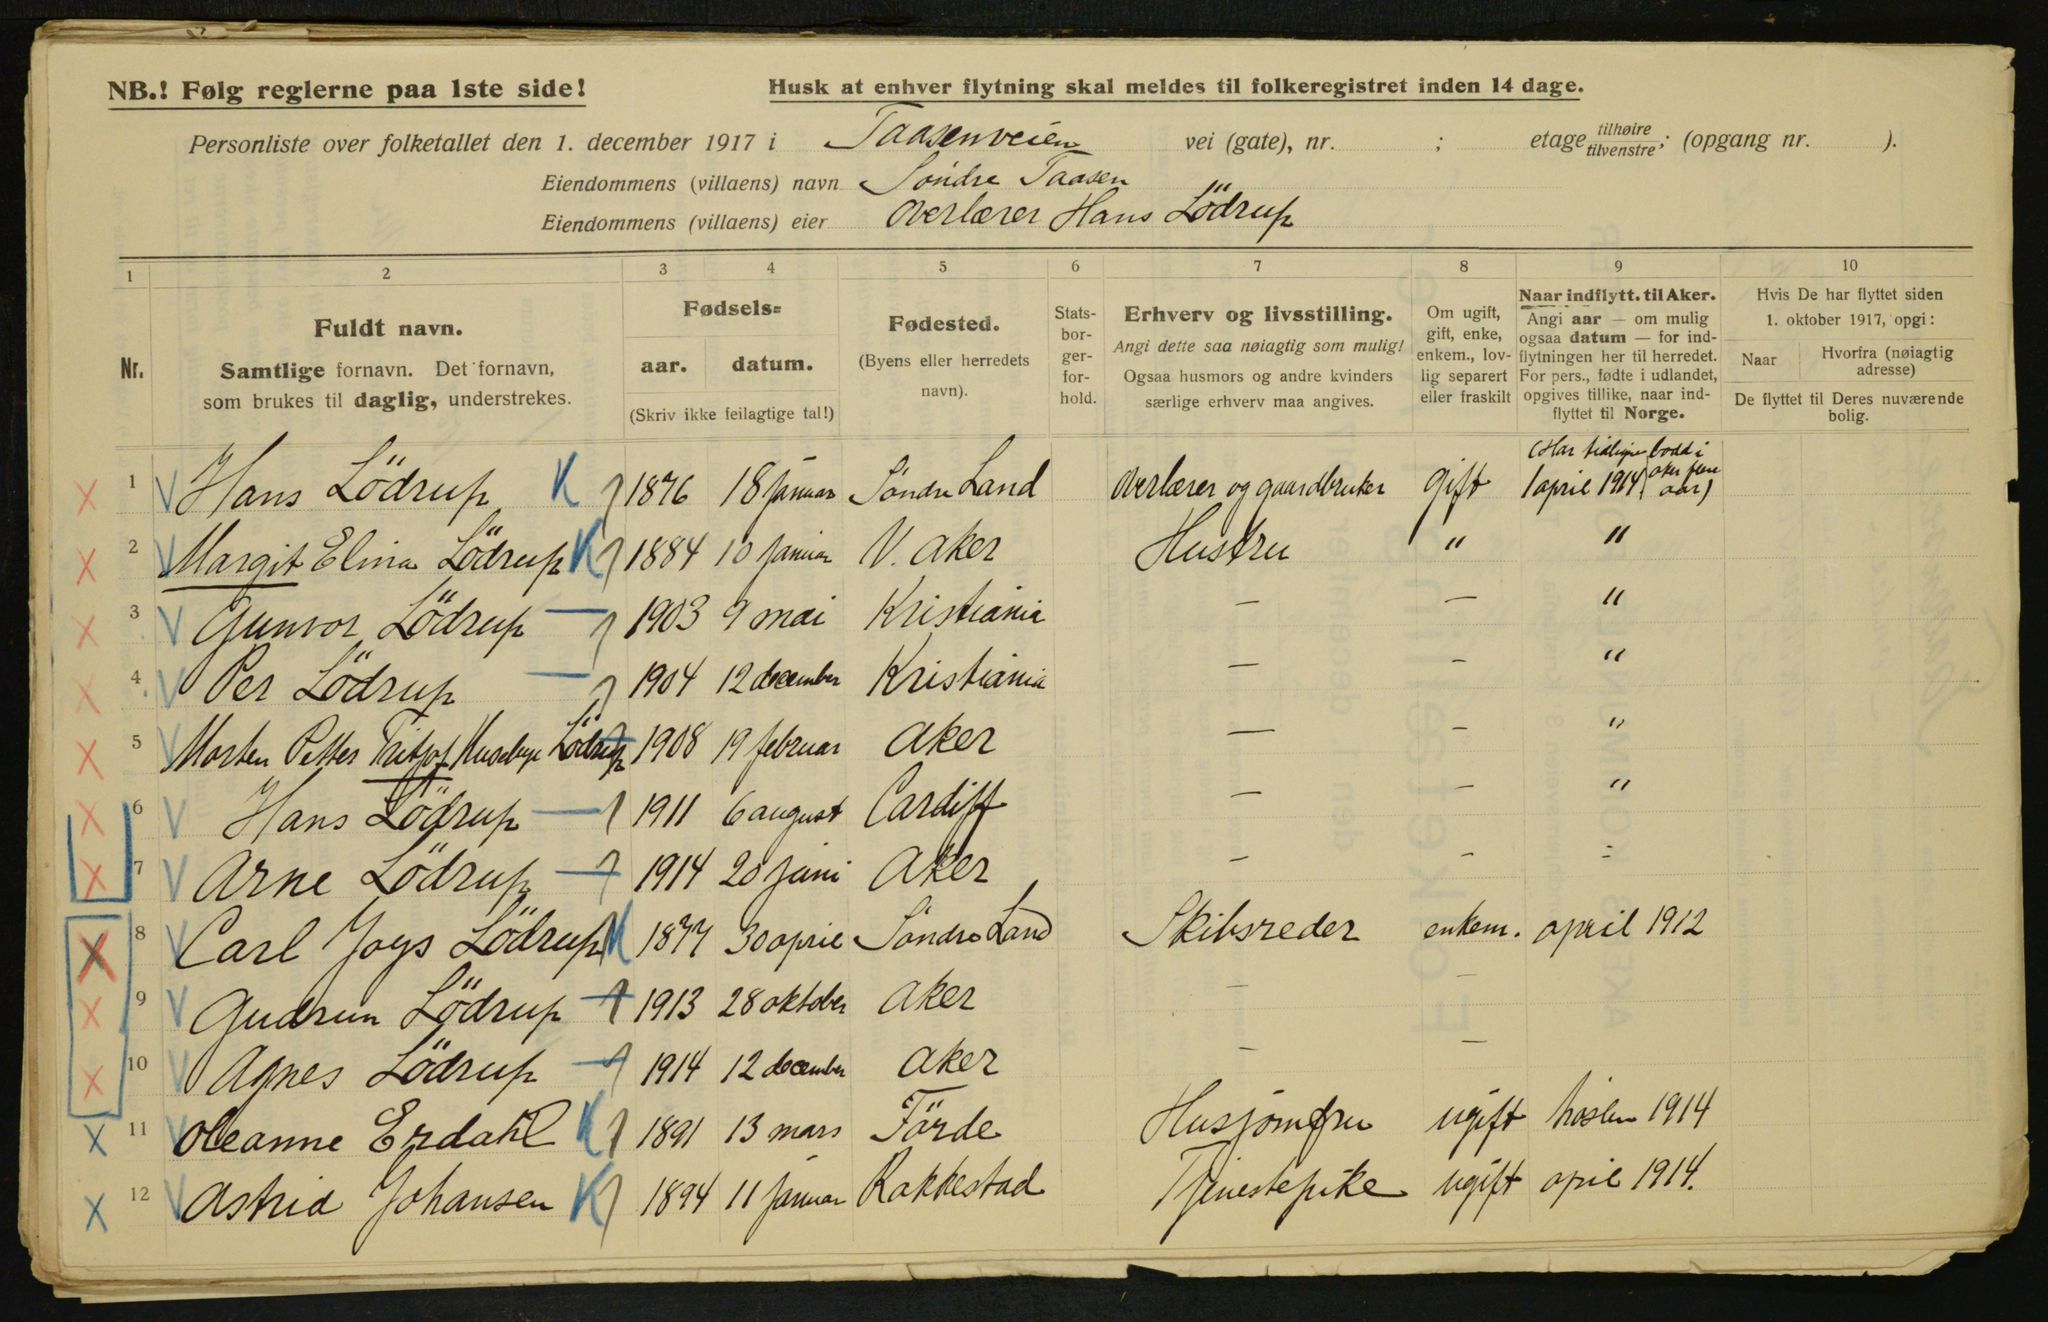 NB.! Følg reglerne paa 1ste side!
Husk at enhver flytning skal meldes til folkeregistret inden 14 dage.
Personliste over folketallet den 1. december 1917 i Taasenveien vei (gate), nr. ; etage tilhøire tilvenstre; (opgang nr. ).
Eiendommens (villaens) navn Söndre Taasen
Eiendommens (villaens) eier Overlærer Hans Lödrup
1 2 3 4 5 6 7 8 9 10
Nr.
Fuldt navn.
Samtlige fornavn. Det fornavn,
som brukes til daglig, understrekes.
Fødsels=
aar. datum.
(Skriv ikke feilagtige tal!)
Fødested.
(Byens eller herredets
navn).
Stats-
bor-
ger-
for-
hold.
Erhverv og livsstilling.
Angi dette saa nøiagtig som mulig!
Ogsaa husmors og andre kvinders
særlige erhverv maa angives.
Om ugift,
gift, enke,
enkem., lov-
lig separert
eller fraskilt
Naar indflytt. til Aker.
Angi aar — om mulig
ogsaa datum — for ind-
flytningen her til herredet.
For pers., fødte i udlandet,
opgives tillike, naar ind-
flyttet til Norge.
Hvis De har flyttet siden
1. oktober 1917, opgi:
Naar Hvorfra (nøiagtig
adresse)
De flyttet til Deres nuværende
bolig.
(Har tidligere bodd i
aker flere
aar)
X 1 V Hans Lödrup K 1876 18 januar Söndre Land Overlærer og gaardbruker gift 1 april 1914
X 2 V Margit Elina Lödrup K 1884 10 januar V. Aker Hustru " "
X 3 V Gunvor Lödrup — 1903 9 mai Kristiania — — "
X 4 V Per Lödrup — 1904 12 december Kristiania — - "
X 5 V Morten Petter Fritjof Huseby Lödrup 1908 19 februar Aker — - "
X 6 V Hans Lödrup — 1911 6 august Cardiff — - "
X 7 V Arne Lödrup — 1914 20 juni Aker - - "
X 8 V Carl Joys Lödrup K 1877 30 april Söndre Land Skibsreder enkem. april 1912
X 9 V Gudrun Lödrup — 1913 28 oktober Aker - -
X 10 V Agnes Lödrup — 1914 12 december Aker - —
X 11 V Oleanne Erdahl K 1891 13 mars Förde Husjomfru ugift hösten 1914
X 12 V Astrid Johansen K 1894 11 januar Rakkestad Tjenestepike ugift april 1914.